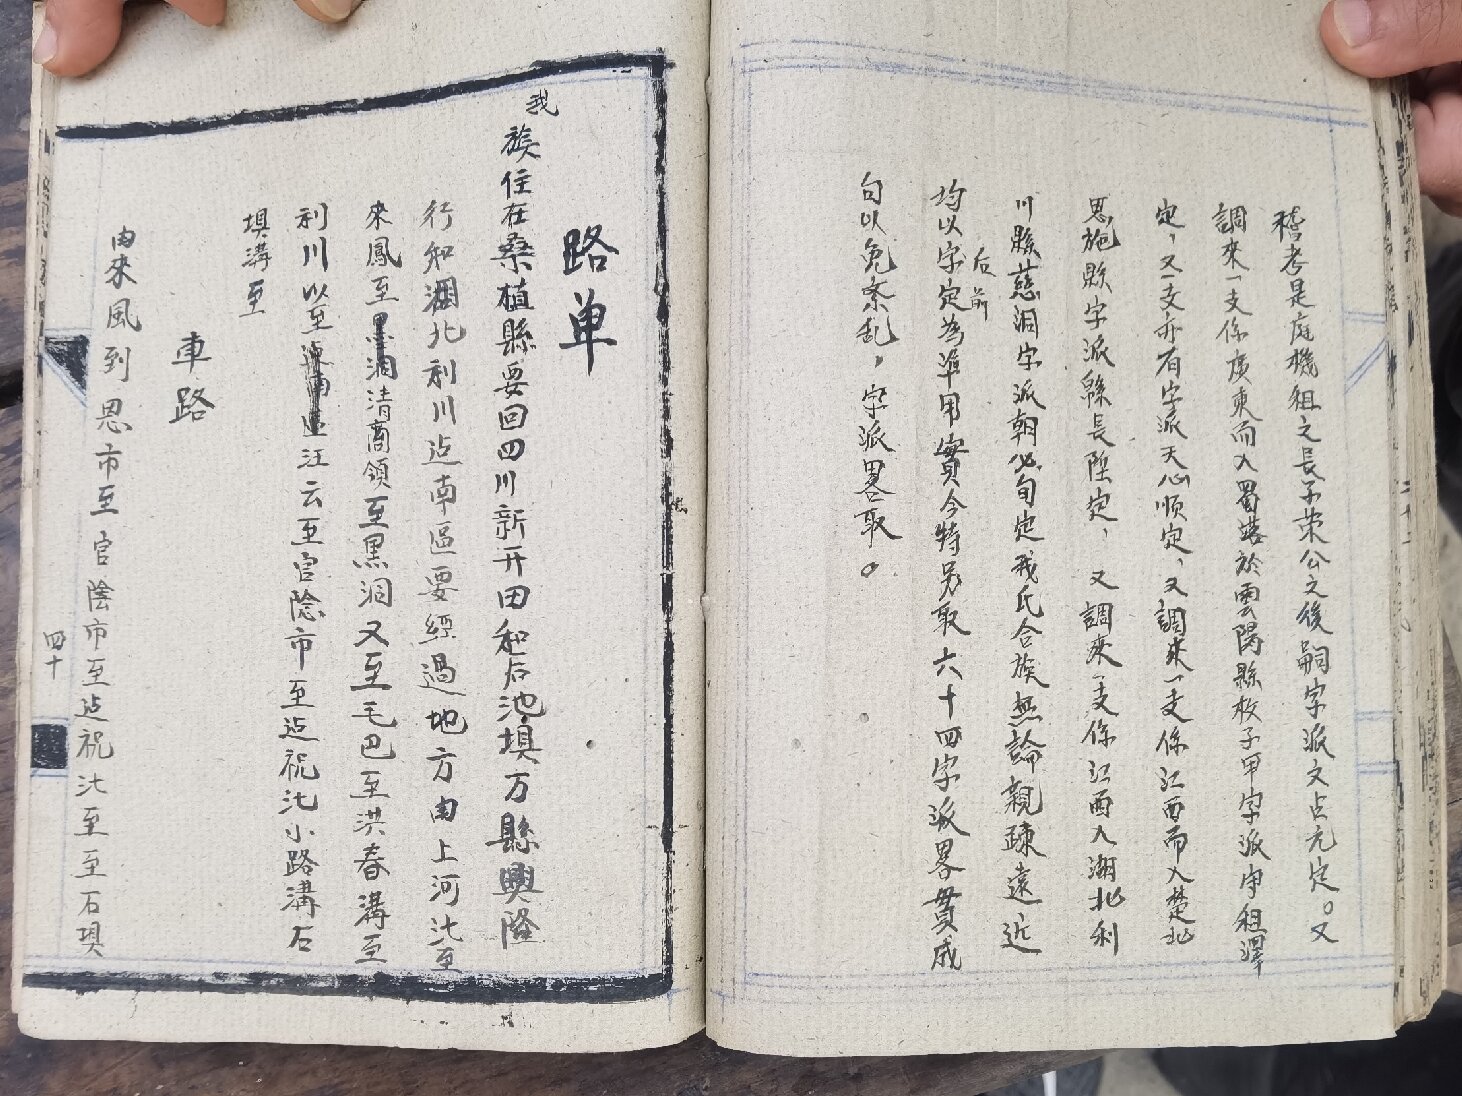 稽考是庭機祖之長子荣公之後嗣字派文占元定。又
調來一支係廣東而入蜀落於雲陽縣枚子甲字派守祖澤
定，又一支亦有字派天心順定，又調來一支係江西而入楚北
恩施縣字派縣長陞定，又調來一支係江西入湖北利
川縣慈洞字派朝必旬定我氏合族無論親疎遠近
后前
均以字定為準用實今特另取六十四字派畧貫成
句以免紊乱，字派畧取。
路单
我
族住在桑植縣要回四川新开田和后池垻万縣興隆
行和湖北利川迠南區要經過地方由上河沱至
來鳳至黑洞清商領至黑洞又至毛巴至洪春溝至
利川以至江云至官陰市至迠祝沱小路溝石
垻溝至
車路
由來風到恩市至官陰市至迠祝沱至至石垻
四十